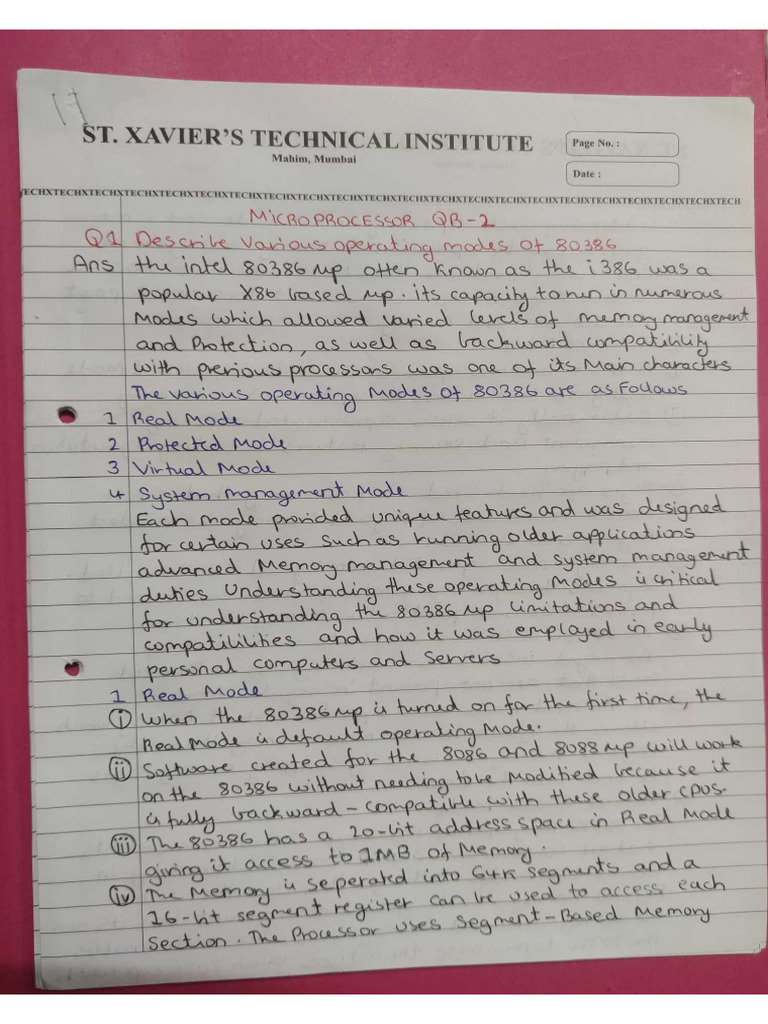 17
ST. XAVIER'S TECHNICAL INSTITUTE
Mahim, Mumbai
Page No. :
Date :
TECHXTECHXTECHXTECHXTECHXTECHXTECHXTECHXTECHXTECHXTECHXTECHXTECHXTECHXTECHXTECHXTECHXTECH
MICROPROCESSOR QB-2
Q1 Describe Various operating modes of 80386
Ans the intel 80386 μp often known as the i386 was a
popular X86 based μp. its capacity to run in numerous
Modes which allowed varied levels of memory management
and Protection, as well as backward compatibility
with previous processors was one of its Main characters
The various operating Modes of 80386 are as Follows
1 Real Mode
2 Protected Mode
3 Virtual Mode
4 System management Mode
Each mode provided unique features and was designed
for certain uses such as running older applications
advanced Memory management and system management
duties Understanding these operating Modes is critical
for understanding the 80386 μp limitations and
compatililities and how it was employed in early
personal computers and Servers
1 Real Mode
(i) When the 80386 μp is turned on for the first time, the
Real mode is default operating Mode.
(ii) Software created for the 8086 and 8088 μp will work
on the 80386 without needing to be Modified because it
is fully backward-compatible with these older CPUs.
(iii) The 80386 has a 20-bit address space in Real Mode
giving it access to 1MB of Memory.
(iv) The Memory is seperated into 64K segments and a
16-bit segment register can be used to access each
Section. The Processor uses Segment-Based Memory